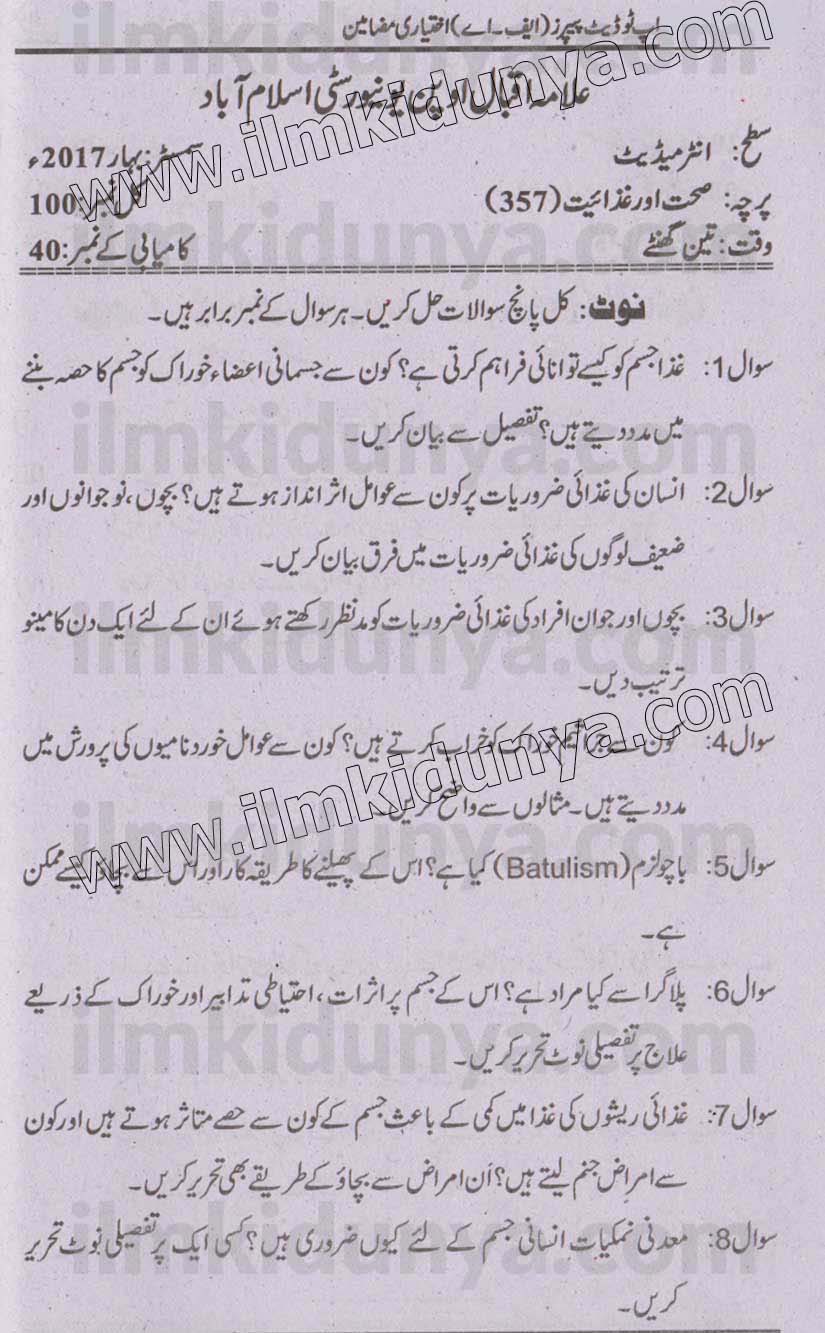 اپ ٹو ڈیٹ پیپرز (ایف۔اے) اختیاری مضامین
علامہ اقبال اوپن یونیورسٹی اسلام آباد
سطح: انٹرمیڈیٹ سمسٹر: بہار 2017ء
پرچہ: صحت اور غذائیت (357) کل نمبر: 100
وقت: تین گھنٹے کامیابی کے نمبر: 40
نوٹ: کل پانچ سوالات حل کریں۔ ہر سوال کے نمبر برابر ہیں۔
سوال 1: غذا جسم کو کیسے توانائی فراہم کرتی ہے؟ کون سے جسمانی اعضاء خوراک کو جسم کا حصہ بننے
میں مدد دیتے ہیں؟ تفصیل سے بیان کریں۔
سوال 2: انسان کی غذائی ضروریات پر کون سے عوامل اثر انداز ہوتے ہیں؟ بچوں، نوجوانوں اور
ضعیف لوگوں کی غذائی ضروریات میں فرق بیان کریں۔
سوال 3: بچوں اور جوان افراد کی غذائی ضروریات کو مدنظر رکھتے ہوئے ان کے لئے ایک دن کا مینو
ترتیب دیں۔
سوال 4: کون سے جراثیم خوراک کو خراب کرتے ہیں؟ کون سے عوامل خوردنامیوں کی پرورش میں
مدد دیتے ہیں۔ مثالوں سے واضح کریں۔
سوال 5: باچولزم (Batulism) کیا ہے؟ اس کے پھیلنے کا طریقہ کار اور اس سے بچاؤ کیسے ممکن
ہے۔
سوال 6: پلاگرا سے کیا مراد ہے؟ اس کے جسم پر اثرات، احتیاطی تدابیر اور خوراک کے ذریعے
علاج پر تفصیلی نوٹ تحریر کریں۔
سوال 7: غذائی ریشوں کی غذا میں کمی کے باعث جسم کے کون سے حصے متاثر ہوتے ہیں اور کون
سے امراض جنم لیتے ہیں؟ اُن امراض سے بچاؤ کے طریقے بھی تحریر کریں۔
سوال 8: معدنی نمکیات انسانی جسم کے لئے کیوں ضروری ہیں؟ کسی ایک پر تفصیلی نوٹ تحریر
کریں۔
www.ilmkidunya.com
www.ilmkidunya.com
ilmkidunya.com
ilmkidunya.com
ilmkidunya.com
ilmkidunya.com
ilmkidunya.com
ilmkidunya.com
ilmkidunya.com